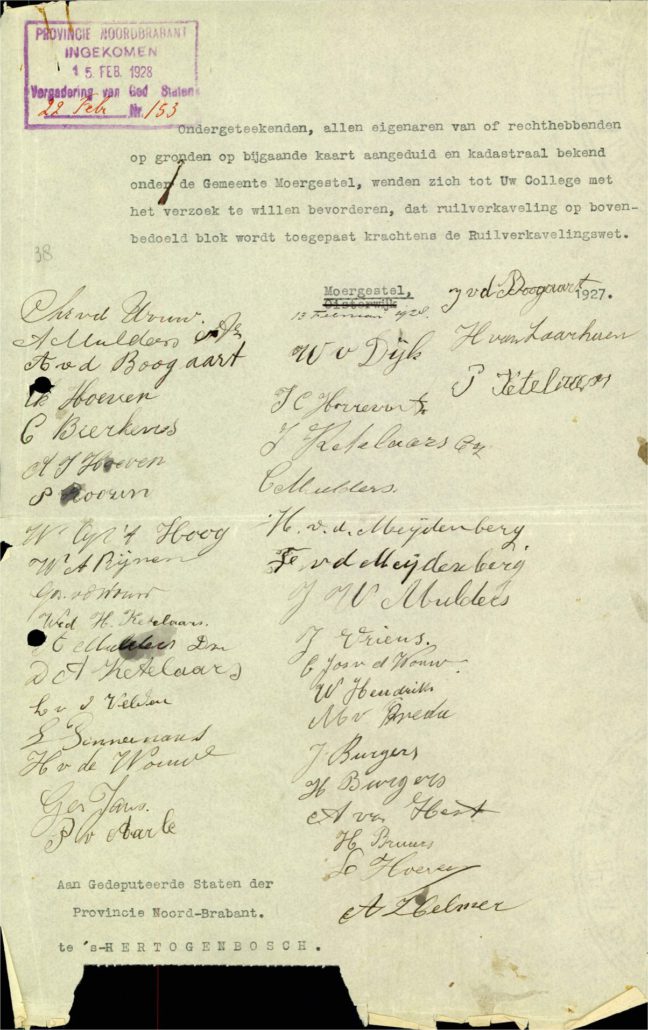 PROVINCIE NOORDBRABANT
INGEKOMEN
15 FEB. 1928
Vergadering van Ged Staten
22 Febr Nr. 153
Ondergeteekenden, allen eigenaren van of rechthebbenden
op gronden op bijgaande kaart aangeduid en kadastraal bekend
onder de Gemeente Moergestel, wenden zich tot Uw College met
het verzoek te willen bevorderen, dat ruilverkaveling op boven-
bedoeld blok wordt toegepast krachtens de Ruilverkavelingswet.
38
Moergestel,
Oisterwijk 1927.
13 Februari 1928.
J v d Boogaart
Chr v d Wouw.
A Mulders
A v d Boogaart
Hoeven
C Bierkens
A J Hoeven
P
W Hoog
W A Rijnen
v d Wouw
Wed H. Ketelaars.
C Mulders
D A Ketelaars
L v d Velden
H v de Wouw
Ger Jans.
P v Aarle
W v Dijk
H van Laarhoven
P Ketelaars
J C
J Ketelaars
C Mulders.
H. v. d. Meijdenberg
v d Meijdenberg
J W Mulders
J Vriens.
C Jos v d Wouw
W Hendriks
M v Breda
J Burgers
H Burgers
A van Hest
H Bruurs
Hoeven
A Helmer
Aan Gedeputeerde Staten der
Provincie Noord-Brabant.
te 's-HERTOGENBOSCH.